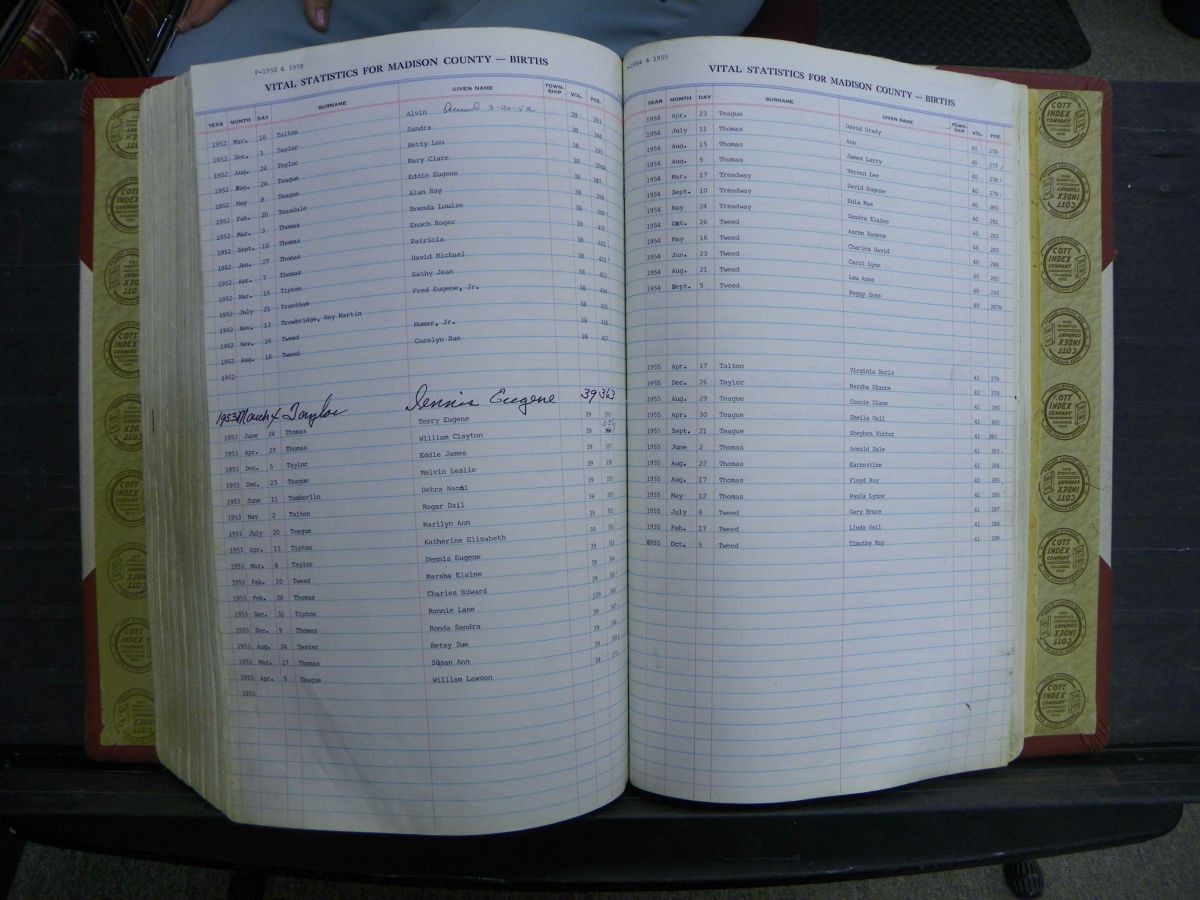 P-1953 & 1952
VITAL STATISTICS FOR MADISON COUNTY — BIRTHS
YEAR MONTH DAY SURNAME GIVEN NAME TOWN-SHIP VOL. PGE.
1952 Mar. 18 Talton Alvin Deceased 3-20-52 38 391
1952 Dec. 3 Taylor Sandra 38 394
1952 Aug. 24 Taylor Betty Lou 38 395
1952 Aug. 26 Teague Mary Clare 38
1952 May 8 Teague Eddie Eugene 38 397
1952 Feb. 20 Teasdale Alan Ray 38 398
1952 Mar. 3 Thomas Brenda Louise 38 399
1952 Sept. 10 Thomas Enoch Roger 38 400
1952 Jan. 27 Thomas Patricia 38 401
1952 Apr. 7 Thomas David Michael 38 402
1952 Mar. 15 Tipton Kathy Jean 38 403
1952 July 21 Trantham Fred Eugene, Jr. 38 404
1952 Nov. 12 Trowbridge, Roy Martin 38 405
1952 Nov. 16 Tweed Homer, Jr. 38 406
1952 Aug. 18 Tweed Carolyn Sue 38 407
1952
1953 March 4 Taylor Dennis Eugene 39 363
1953 June 24 Thomas Terry Eugene 39 355
1953 Apr. 23 Thomas William Clayton 39
1953 Dec. 5 Taylor Eddie James 39 357
1953 Dec. 23 Teague Melvin Leslie 39 358
1953 June 11 Tomberlin Debra Naomi 39
1953 May 2 Talton Rogar Dail 39 360
1953 July 20 Teague Marilyn Ann 39 361
1953 Apr. 13 Tipton Katherine Elizabeth 39 362
1953 Mar. 4 Taylor Dennis Eugene 39 363
1953 Feb. 10 Tweed Marsha Elaine 39 364
1953 Feb. 28 Thomas Charles Edward 39 365
1953 Dec. 31 Tipton Ronnie Lane 39 366
1953 Dec. 9 Thomas Ronda Sandra 39 367
1953 Aug. 24 Tester Betsy Sue 39
1953 Mar. 17 Thomas Susan Ann 39
1953 Apr. 9 Teague William Lawson 39
1953
P-1954 & 1955
VITAL STATISTICS FOR MADISON COUNTY — BIRTHS
YEAR MONTH DAY SURNAME GIVEN NAME TOWN-SHIP VOL. PGE.
1954 Apr. 23 Teague David Grady 40 276
1954 July 11 Thomas Ann 40 277
1954 Aug. 15 Thomas James Larry 40 278
1954 Aug. 5 Thomas Vernon Lee 40 279
1954 Mar. 17 Treadway David Eugene 40 280
1954 Sept. 10 Treadway Eula Mae 40 281
1954 May 24 Treadway Sandra Elaine 40 282
1954 Oct. 26 Tweed Aaron Eugene 40 283
1954 May 16 Tweed Charles David 40 284
1954 Jan. 23 Tweed Carol Lynn 40 285
1954 Aug. 21 Tweed Lou Anne 40 286
1954 Sept. 5 Tweed Peggy Inez 40
1955 Apr. 17 Talton Virginia Doris 41 278
1955 Dec. 26 Taylor Marsha Dianne 41 279
1955 Aug. 29 Teague Connie Diane 41 280
1955 Apr. 30 Teague Sheila Gail 41 281
1955 Sept. 21 Teague Stephen Victor 41 282
1955 June 2 Thomas Arnold Dale 41 283
1955 Aug. 22 Thomas Earnestine 41 284
1955 Aug. 17 Thomas Floyd Ray 41 285
1955 May 12 Thomas Paula Lynne 41 286
1955 July 8 Tweed Gary Bruce 41 287
1955 Feb. 17 Tweed Linda Gail 41 288
1955 Oct. 5 Tweed Timothy Ray 41 289
COTT INDEX COMPANY